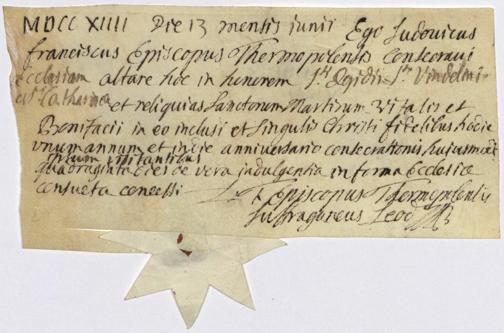 MDCCXIIII Die 13 mensis junii Ego Ludovicus
franciscus Episcopus Thermopolensis consecravi
Ecclesiam altare hoc in honorem Sti Egidii
et Catharinæ et reliquias sanctorum Martirum Vitalis et
Bonifacii in eo inclusi et singulis Christi fidelibus hodie
unum annum et in die anniversario consecrationis hujusmodi
ipsum visitantibus
quadraginta dies de vera indulgentia in forma Ecclesiæ
consueta concessi
Episcopus Thermopolensis
suffraganeus Leod